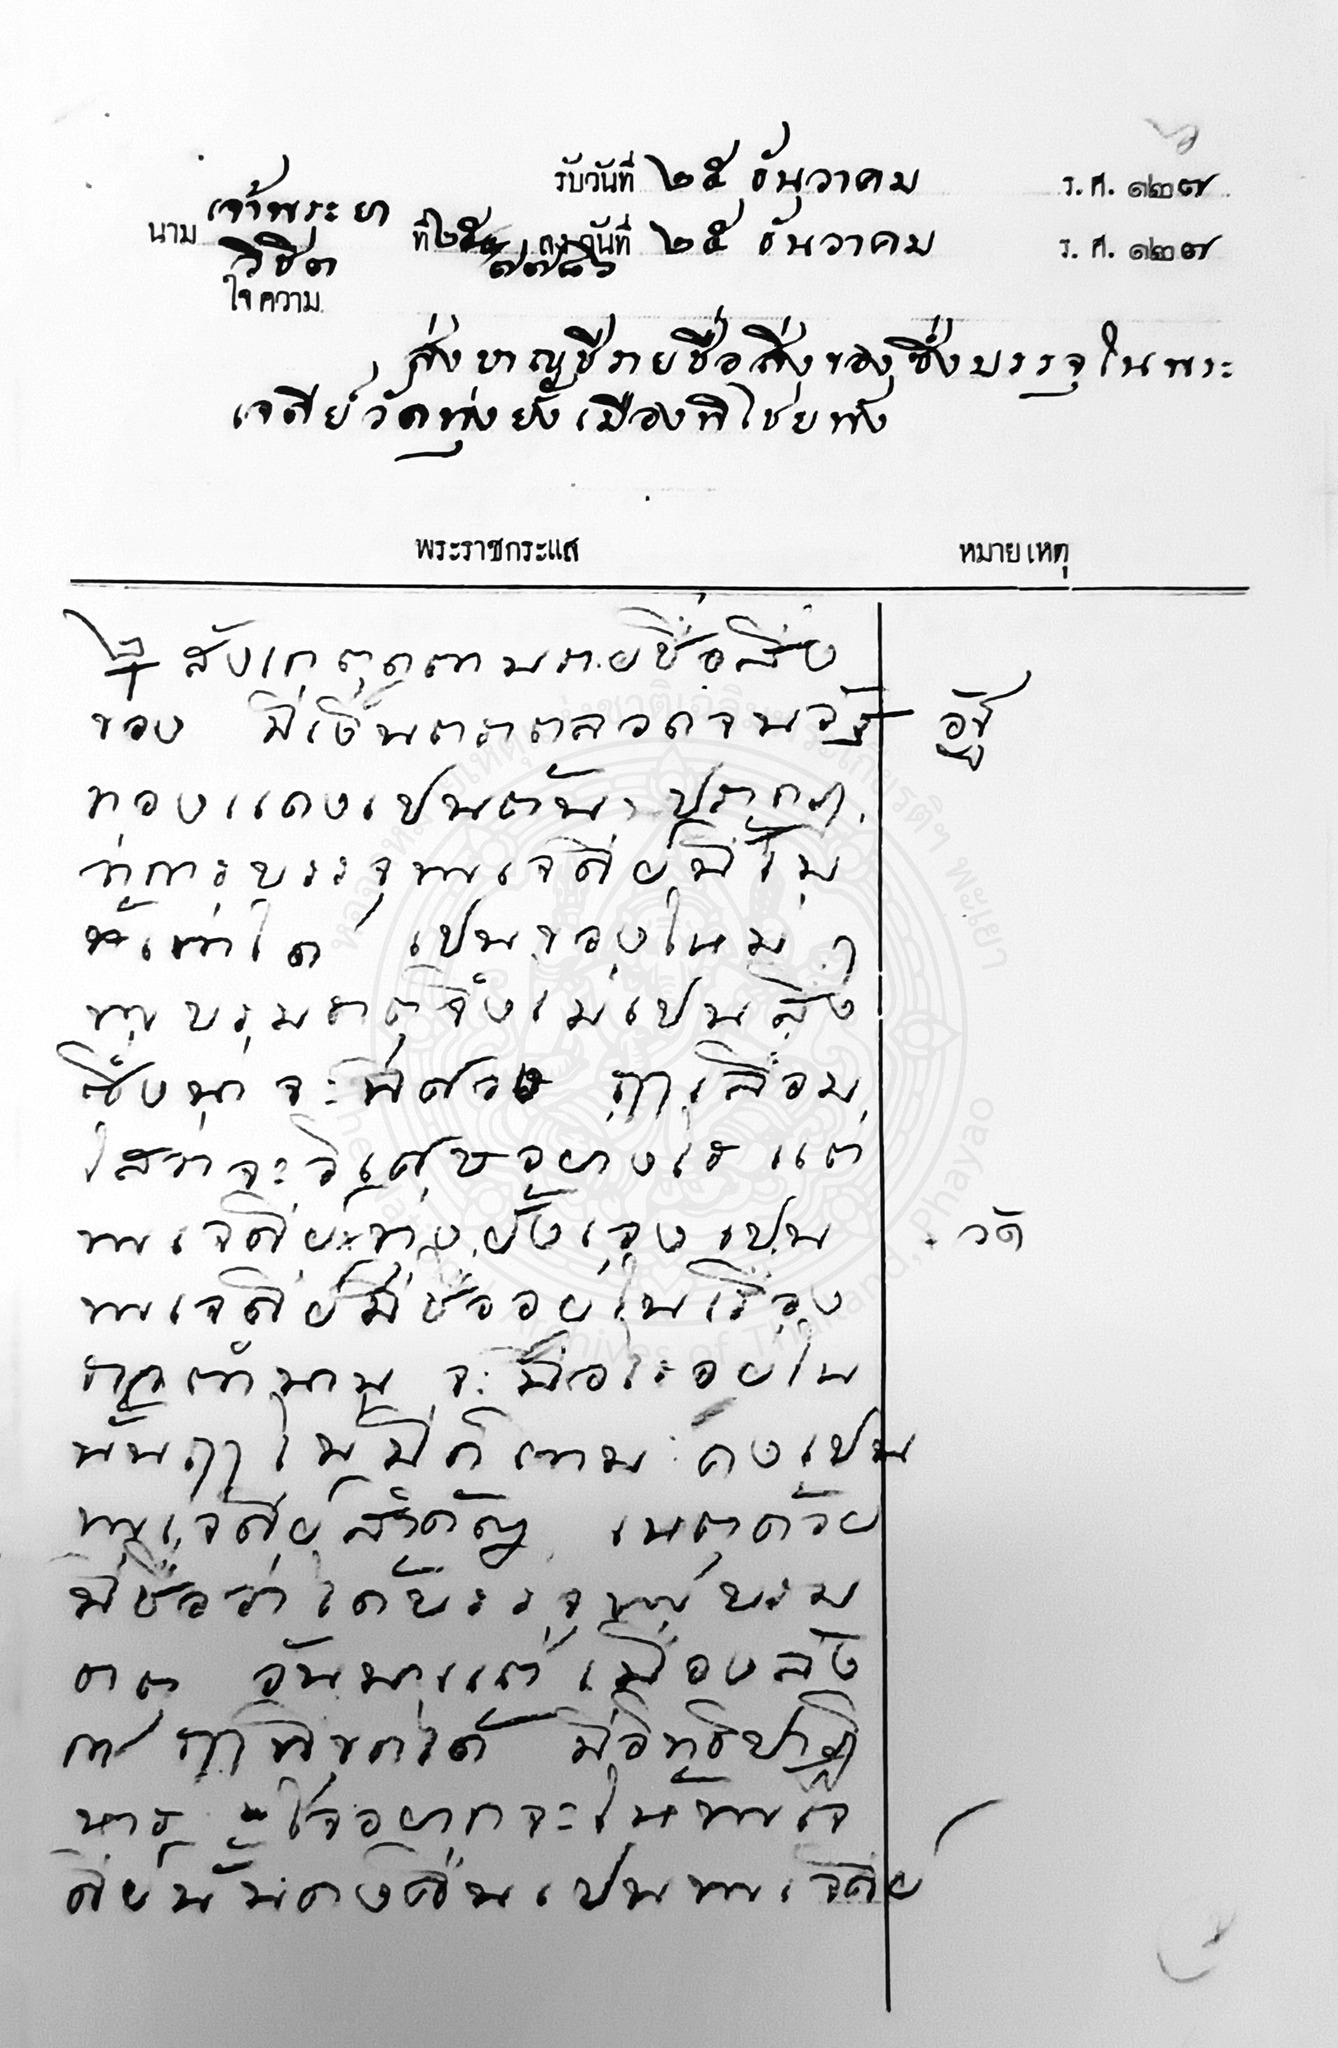 รับวันที่ ๒๕ ธันวาคม ร.ศ. ๑๒๗
นาม เจ้าพระยา ที่ ลงวันที่ ๒๕ ธันวาคม ร.ศ. ๑๒๗
วิชิต ๗๗๘๖
ใจความ
ส่งบาญชีรายชื่อสิ่งของซึ่งบรรจุในพระ
เจดีย์วัดทุ่งยั้งเมืองพิไชยพัง
พระราชกระแส
หมายเหตุ
สังเกตดูตามรายชื่อสิ่ง
ของ มีเงินตราตลอดจนอัฐ อัฐ
ทองแดงเปนต้น ปรากฏ
ว่าการบรรจุพระเจดีย์นี้ไม่
ช้าเท่าใด เปนของใหม่ ๆ
พระบรมธาตุจึงไม่เปนสิ่ง
ซึ่งน่าจะพิศวง ฤๅเลื่อม
ใสว่าจะวิเศษอย่างไร แต่
พระเจดีย์ทุ่งยั้งเองเปน วัด
พระเจดีย์มีชื่ออยู่ในเรื่อง
ราชตำนาน จะมีอะไรอยู่ใน
นั้นฤๅไม่มีก็ตาม คงเปน
พระเจดีย์สำคัญ เหตุด้วย
มีชื่อว่าได้บรรจุพระบรม
ธาตุ อันมาแต่เมืองลัง
กา มีอิทธิปาฏิ
หาร ใจอยากจะให้พระเจ
ดีย์นั้นคงคืนเปนพระเจดีย์
หอจดหมายเหตุแห่งชาติเฉลิมพระเกียรติฯ พะเยา
Archives of Thailand, Phayao